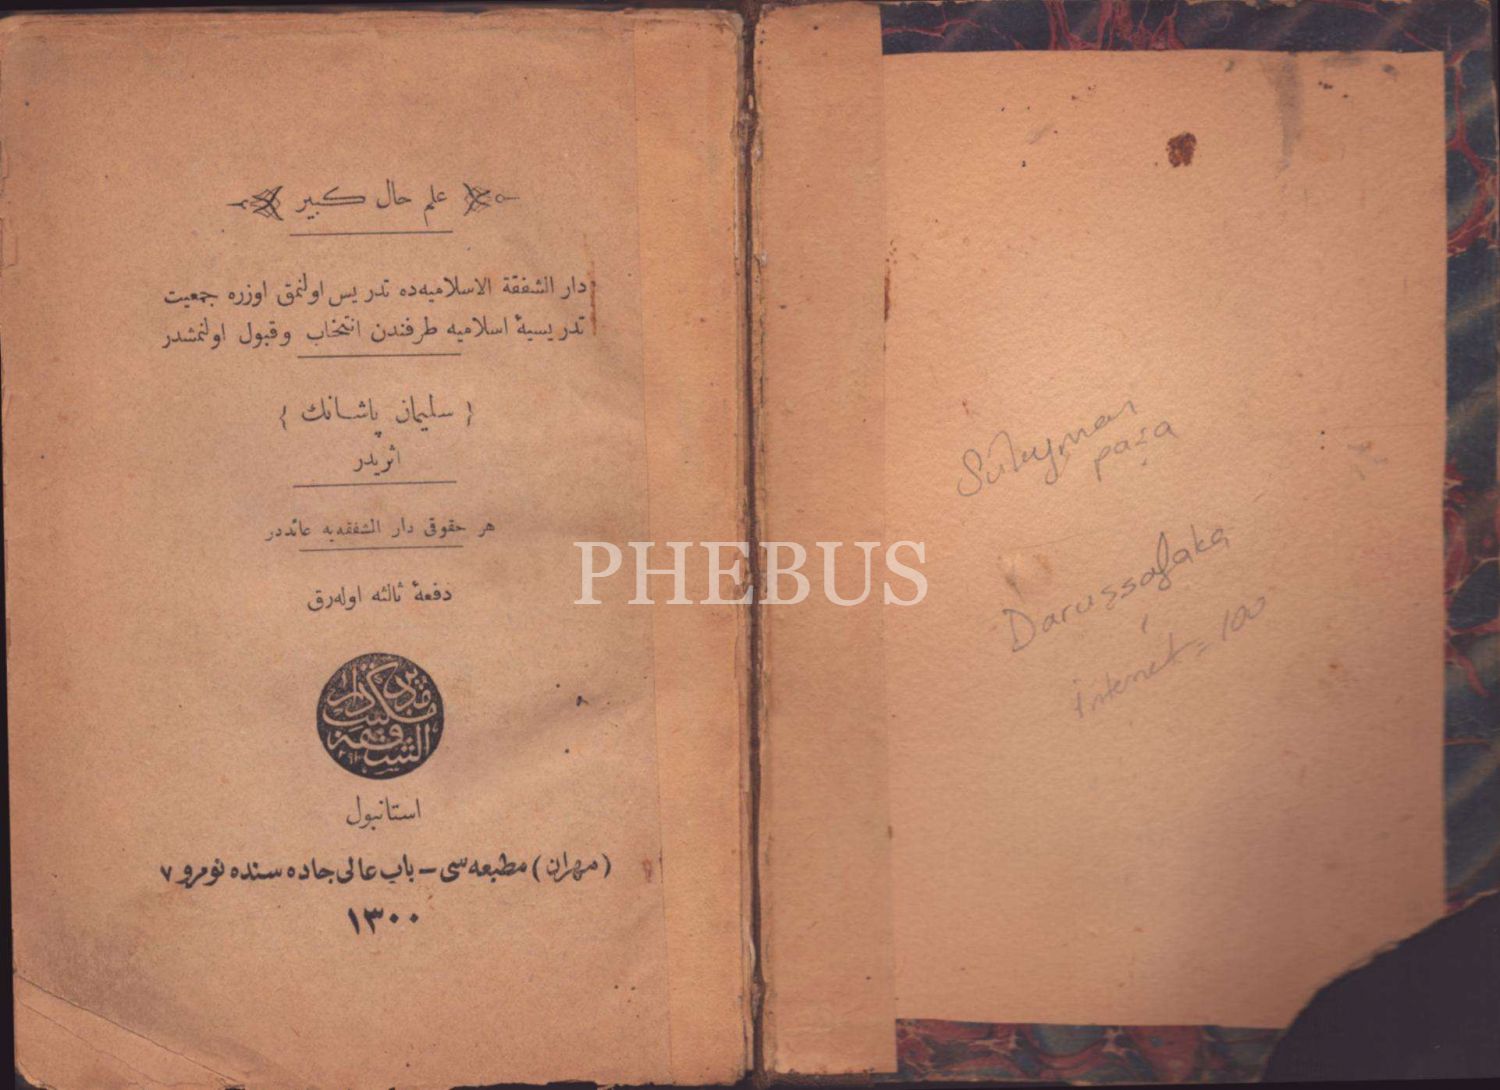 علم حال كبير
دار الشفقة الاسلاميه‌ده تدريس اولنمق اوزره جمعيت
تدريسيۀ اسلاميه طرفندن انتخاب و قبول اولنمشدر
{ سليمان پاشانك }
اثريدر
هر حقوقى دار الشفقه‌يه عائددر
دفعۀ ثالثه اوله‌رق
مكتب دار الشفقة
استانبول
(مهران) مطبعه‌سى – باب عالى جاده سنده نومرو ٧
١٣٠٠
PHEBUS
Süleyman
paşa
Daruşşafaka
internet = 100